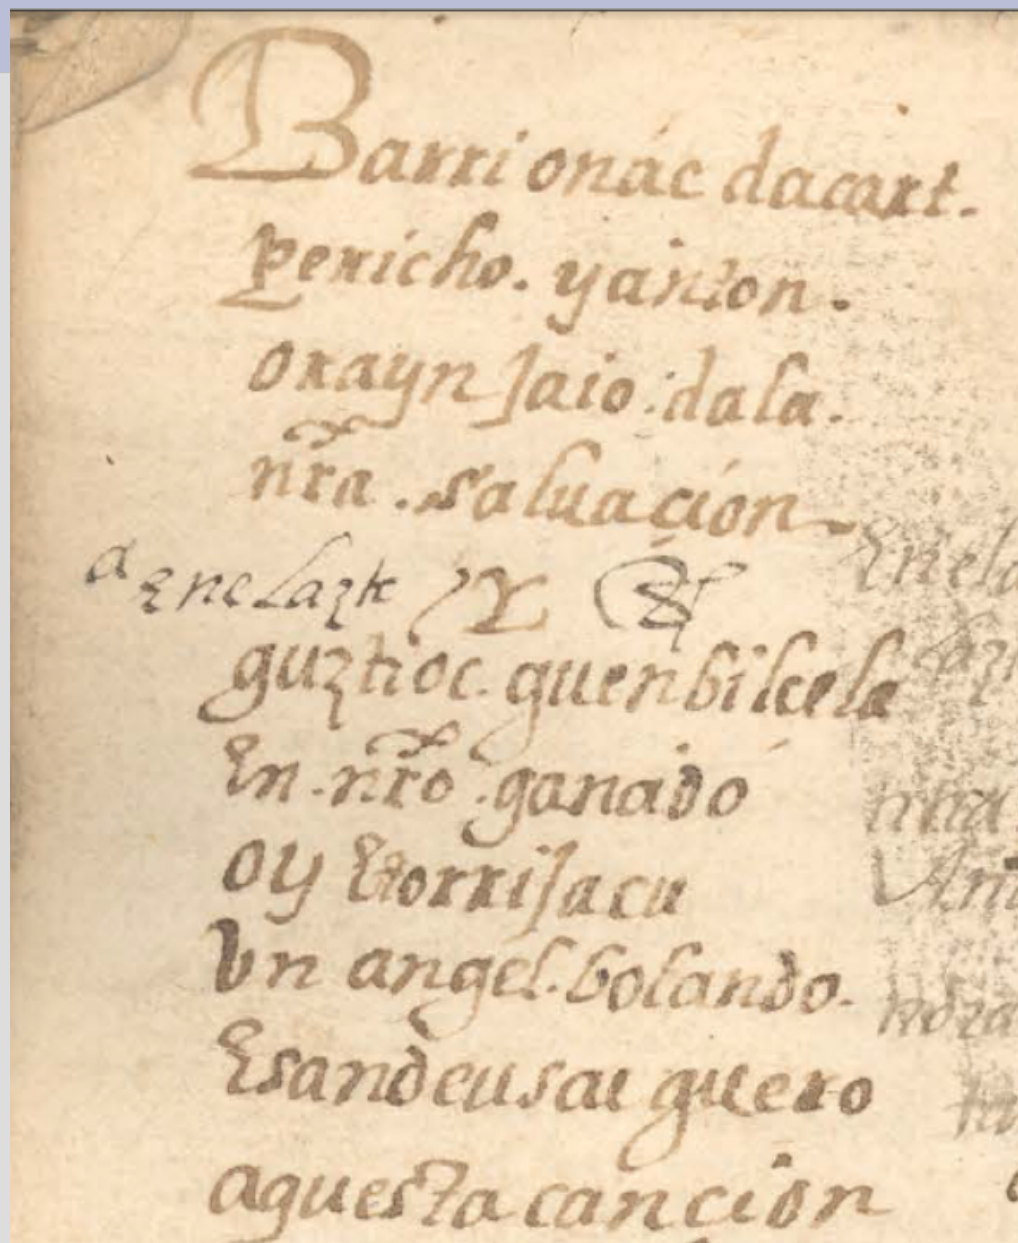 Barrionác dacart.
pericho. y anton.
orayn jaio dala.
nr̃a. saluaçion
guztioc. guenbilcela
En. nr̃o. ganado
oy Etorri jacu
Vn angel. bolando.
Esandeusai guero
aquesta cancion